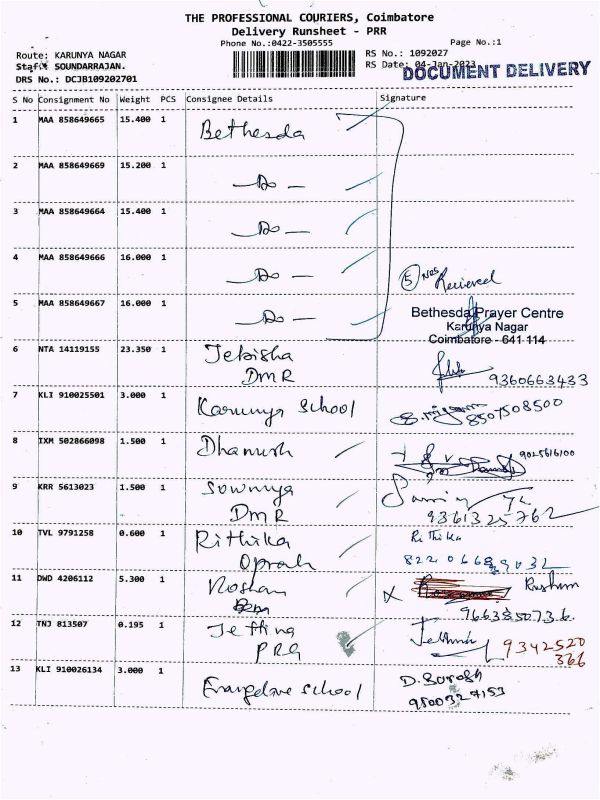 THE PROFESSIONAL COURIERS, Coimbatore
Delivery Runsheet - PRR
Phone No.:0422-3505555
Page No.:1
Route: KARUNYA NAGAR
RS No.: 1092027
Staff: SOUNDARRAJAN.
RS Date: 04-Jan-2023
DOCUMENT DELIVERY
DRS No.: DCJB109202701
S No Consignment No Weight PCS Consignee Details Signature
1 MAA 858649665 15.400 1 Bethesda
2 MAA 858649669 15.200 1 - Do -
3 MAA 858649664 15.400 1 - Do -
4 MAA 858649666 16.000 1 - Do -
5 Nos Recieved
5 MAA 858649667 16.000 1 - Do -
Bethesda Prayer Centre
Karunya Nagar
Coimbatore - 641 114
6 NTA 14119155 23.350 1 Jebisha
DMR
9360663433
7 KLI 910025501 3.000 1 Karunya School
8507508500
8 IXM 502866098 1.500 1 Dhanush
9025616100
9 KRR 5613023 1.500 1 Sowmya
DMR
9361325762
10 TVL 9791258 0.600 1 Rithika
Oprah
Rithika
11 DWD 4206112 5.300 1 Roshan
Roshan
9663850736
12 TNJ 813507 0.195 1 Jeffina
PRG
9342520
366
13 KLI 910026134 3.000 1 Evangeline School
D. Suresh
9500327153